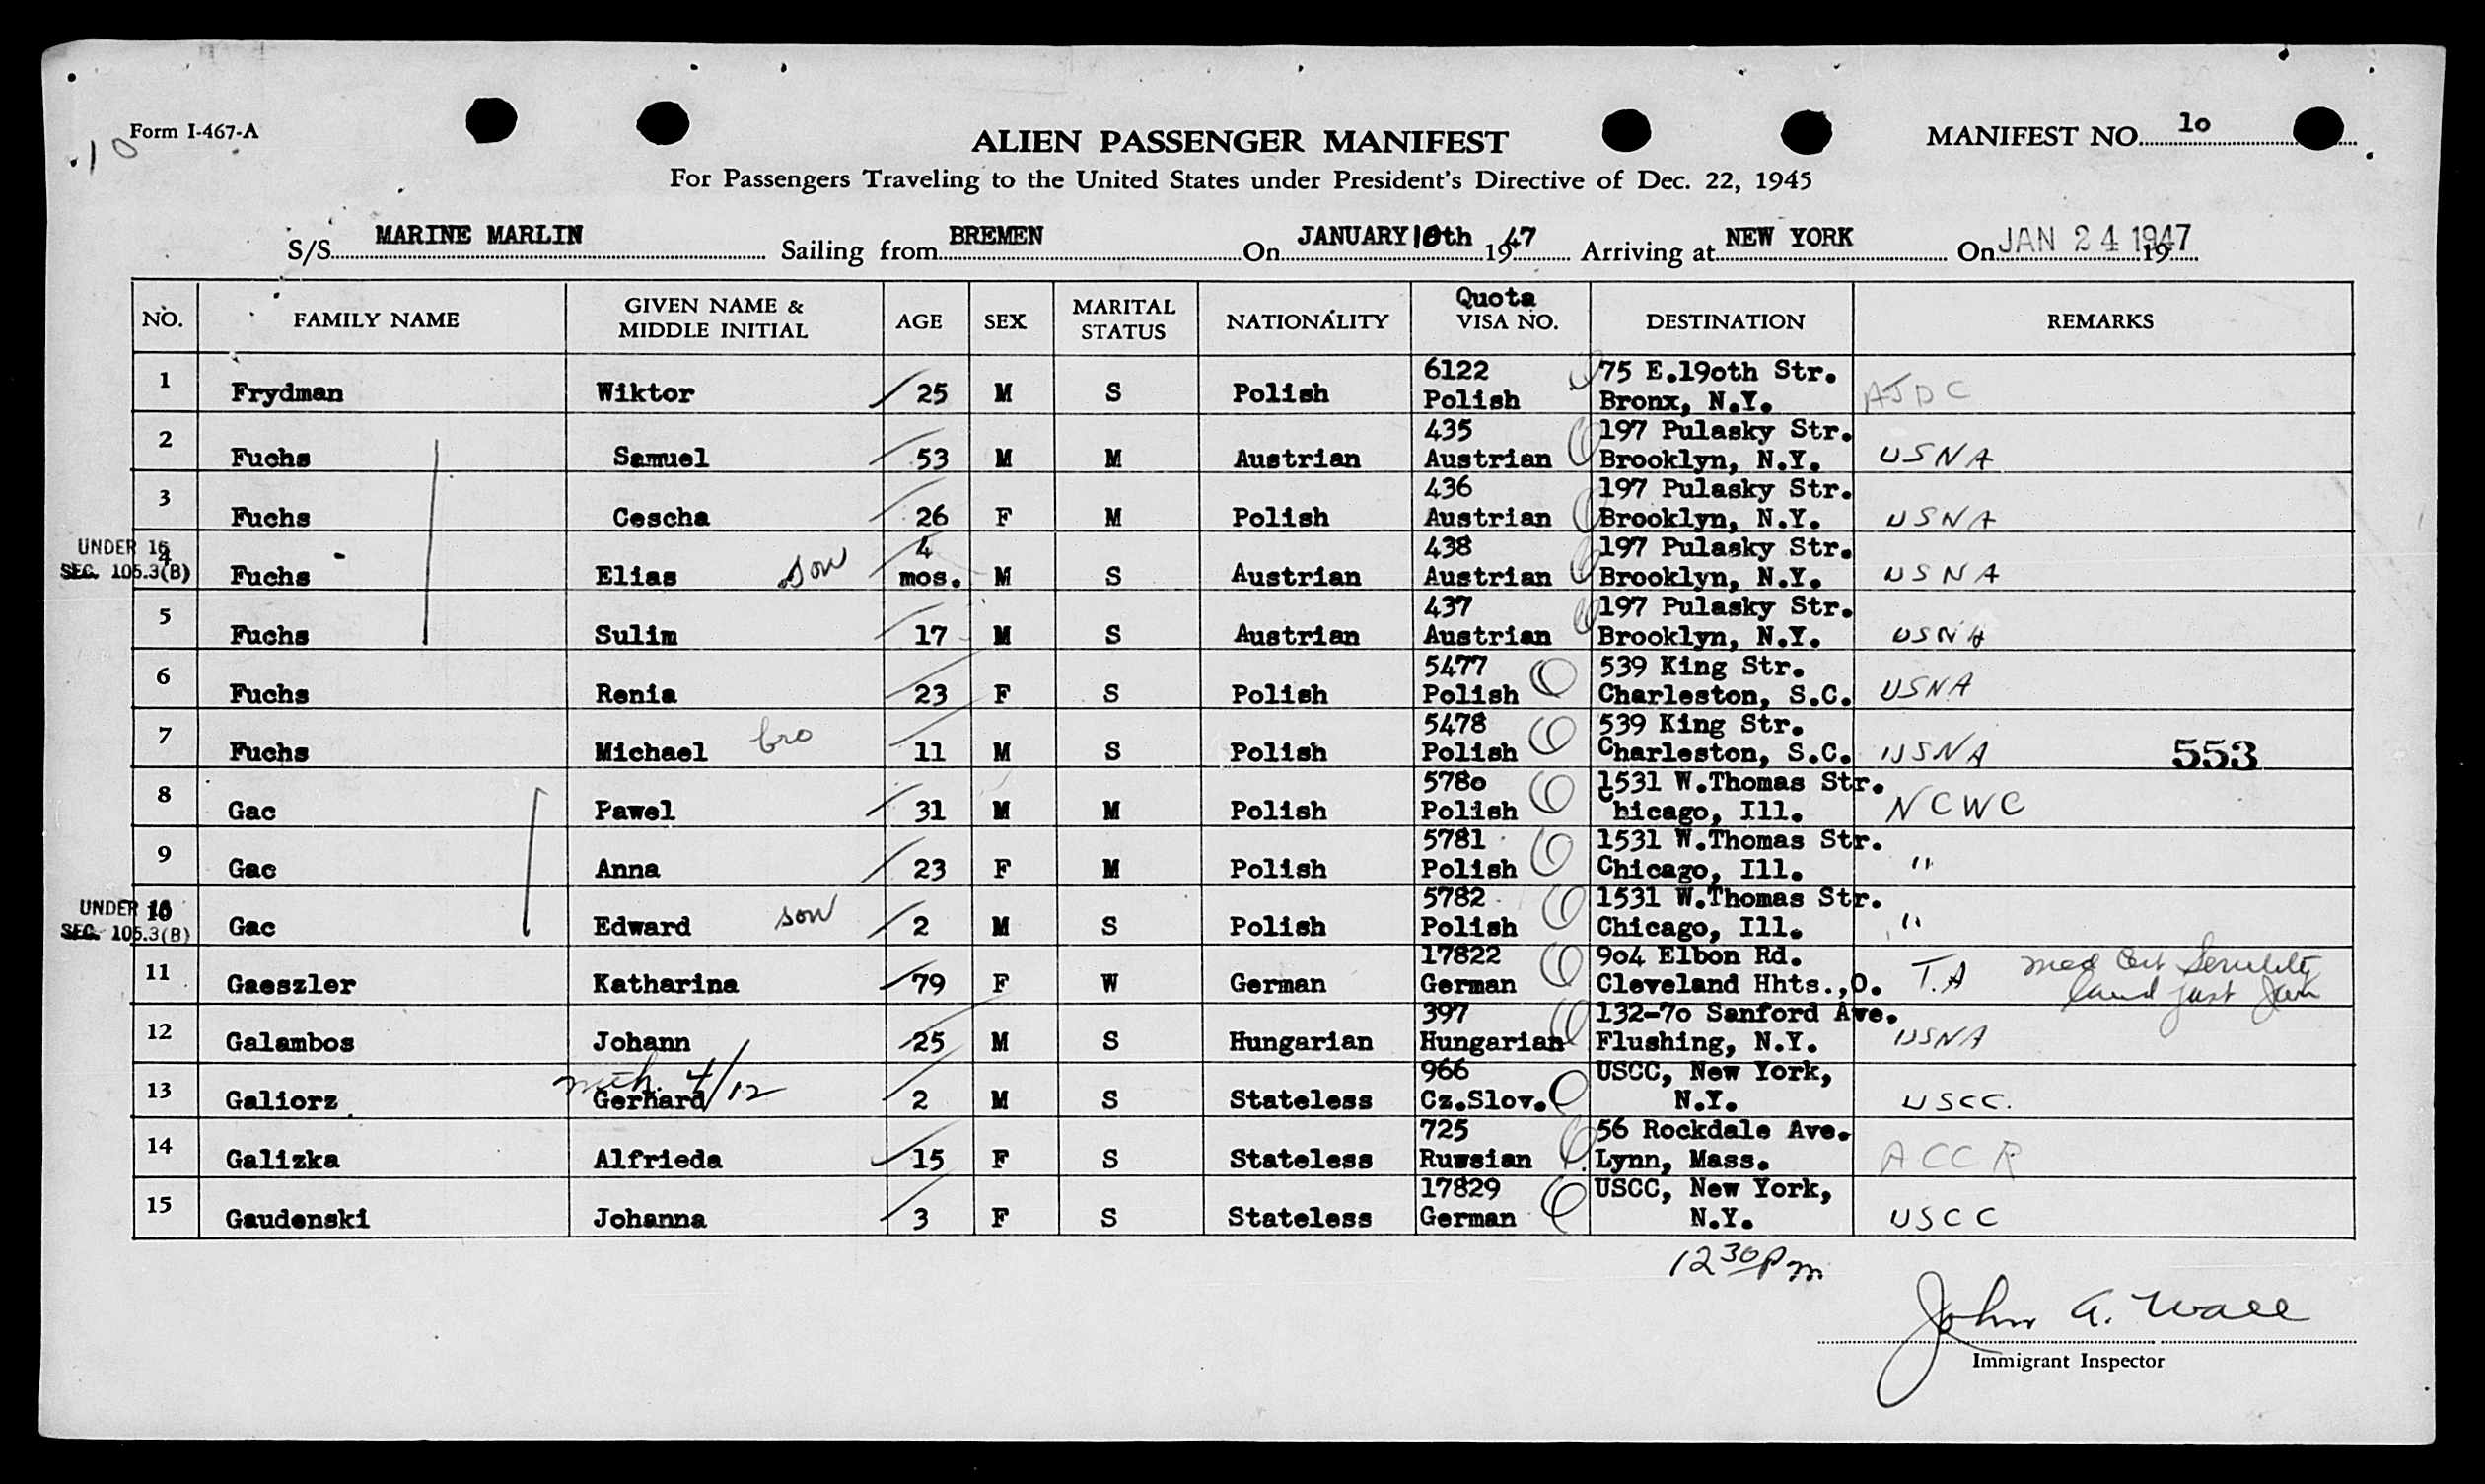 Form I-467-A
10
ALIEN PASSENGER MANIFEST
MANIFEST NO. 1o
For Passengers Traveling to the United States under President's Directive of Dec. 22, 1945
S/S MARINE MARLIN Sailing from BREMEN On JANUARY 10th 1947 Arriving at NEW YORK On JAN 24 1947 19
NO. FAMILY NAME GIVEN NAME & MIDDLE INITIAL AGE SEX MARITAL STATUS NATIONALITY Quota VISA NO. DESTINATION REMARKS
1 Frydman Wiktor 25 M S Polish 6122 Polish 75 E.19oth Str. Bronx, N.Y. AJDC
2 Fuchs Samuel 53 M M Austrian 435 Austrian 197 Pulasky Str. Brooklyn, N.Y. USNA
3 Fuchs Cescha 26 F M Polish 436 Austrian 197 Pulasky Str. Brooklyn, N.Y. USNA
UNDER 16 SEC. 105.3(B) 4 Fuchs Elias son 4 mos. M S Austrian 438 Austrian 197 Pulasky Str. Brooklyn, N.Y. USNA
5 Fuchs Sulim 17 M S Austrian 437 Austrian 197 Pulasky Str. Brooklyn, N.Y. USNA
6 Fuchs Renia 23 F S Polish 5477 Polish 539 King Str. Charleston, S.C. USNA
7 Fuchs Michael bro 11 M S Polish 5478 Polish 539 King Str. Charleston, S.C. USNA 553
8 Gac Pawel 31 M M Polish 578o Polish 1531 W.Thomas Str. Chicago, Ill. NCWC
9 Gac Anna 23 F M Polish 5781 Polish 1531 W.Thomas Str. Chicago, Ill. "
UNDER 16 SEC. 105.3(B) 10 Gac Edward son 2 M S Polish 5782 Polish 1531 W.Thomas Str. Chicago, Ill. "
11 Gaeszler Katharina 79 F W German 17822 German 9o4 Elbon Rd. Cleveland Hhts.,O. T.A med Cert Senility
12 Galambos Johann 25 M S Hungarian 397 Hungarian 132-7o Sanford Ave. Flushing, N.Y. USNA
13 Galiorz Gerhard 4/12 2 M S Stateless 966 Cz.Slov. USCC, New York, N.Y. USCC.
14 Galizka Alfrieda 15 F S Stateless 725 Russian 56 Rockdale Ave. Lynn, Mass. ACCR
15 Gaudenski Johanna 3 F S Stateless 17829 German USCC, New York, N.Y. USCC
12 30 Pm
John A. Wall
Immigrant Inspector